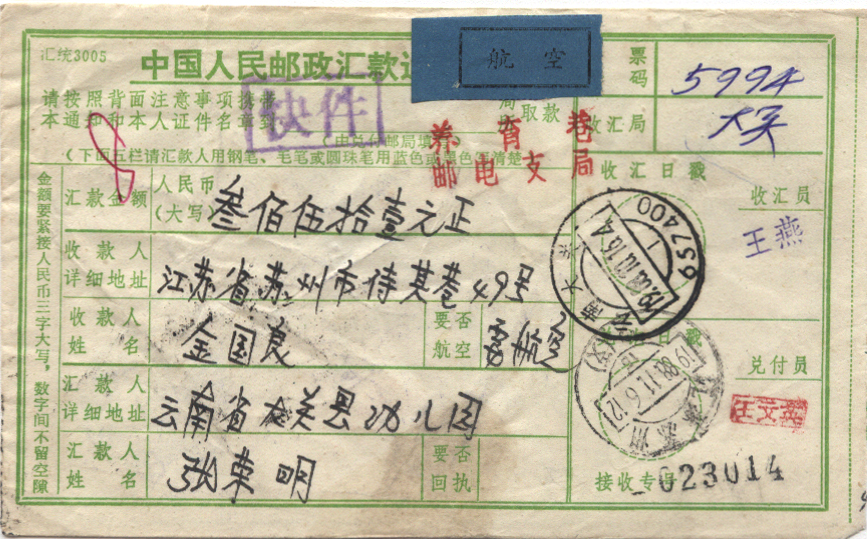 汇统3005
中国人民邮政汇款
航空
票码
5994
请按照背面注意事项携带
快件
取款
本通知和本人证件名章到
收汇局
大关
(由兑付邮局填
养育巷
邮电支局
(下面五栏请汇款人用钢笔、毛笔或圆珠笔用蓝色或黑色写清楚
金额要紧接人民币三字大写,数字间不留空隙
汇款金额
人民币
(大写)
叁佰伍拾壹元正
收汇日戳
收汇员
王燕
657400
云南大关
收款人
详细地址
江苏省苏州市侍其巷49号
收款人
姓名
金国良
要否
航空
要航空
汇日戳
兑付员
王文英
汇款人
详细地址
云南省大关县幼儿园
苏州
汇款人
姓名
张东明
要否
回执
接收专号
023014